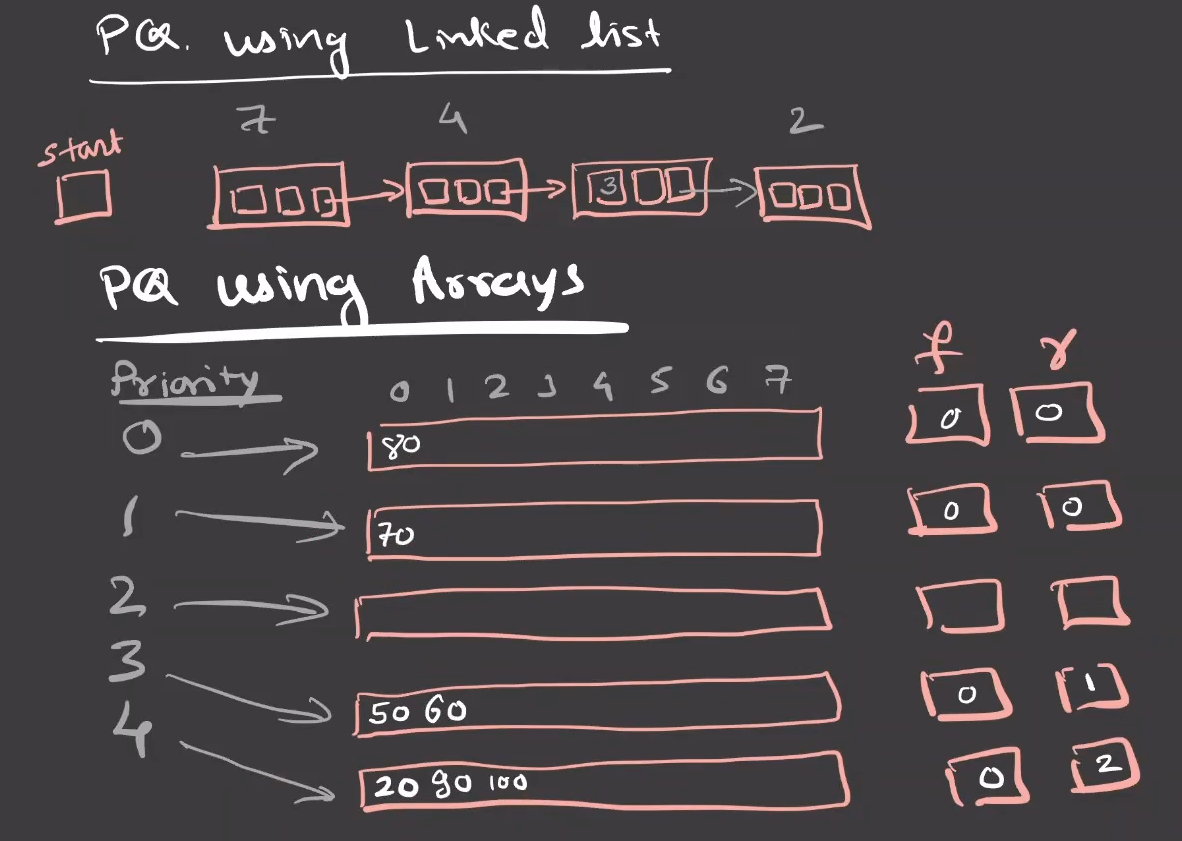 PQ. using Linked list
7 4 2
start
3
PQ using Arrays
f r
Priority 0 1 2 3 4 5 6 7
0 80 0 0
1 70 0 0
2
3 50 60 0 1
4 20 90 100 0 2